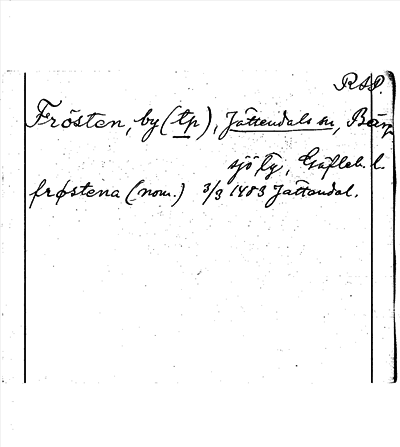 RAP.
Frösten, by (tp), Jättendals sn, Berg-
sjö tg, Gäfleb. l.
frøstena (nom.) 3/3 1483 Jattandal.